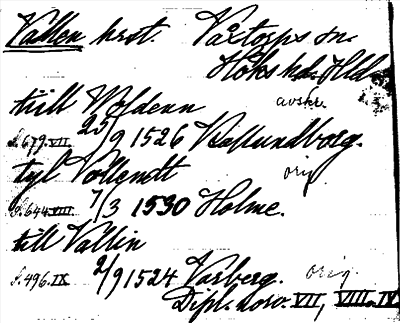 Vallen hrst. Växtorps sn.
Höks hd. Hld
tiill Wofdenn avskr.
s. 679. VII. 25/9 1526 Kallundborg.
tyl Vollendt orig.
s. 644 VIII. 7/3 1530 Holme.
till Vallin
s. 496. IX 2/9 1524 Varberg. orig.
Dipl. norv. VII, VIII o. IX